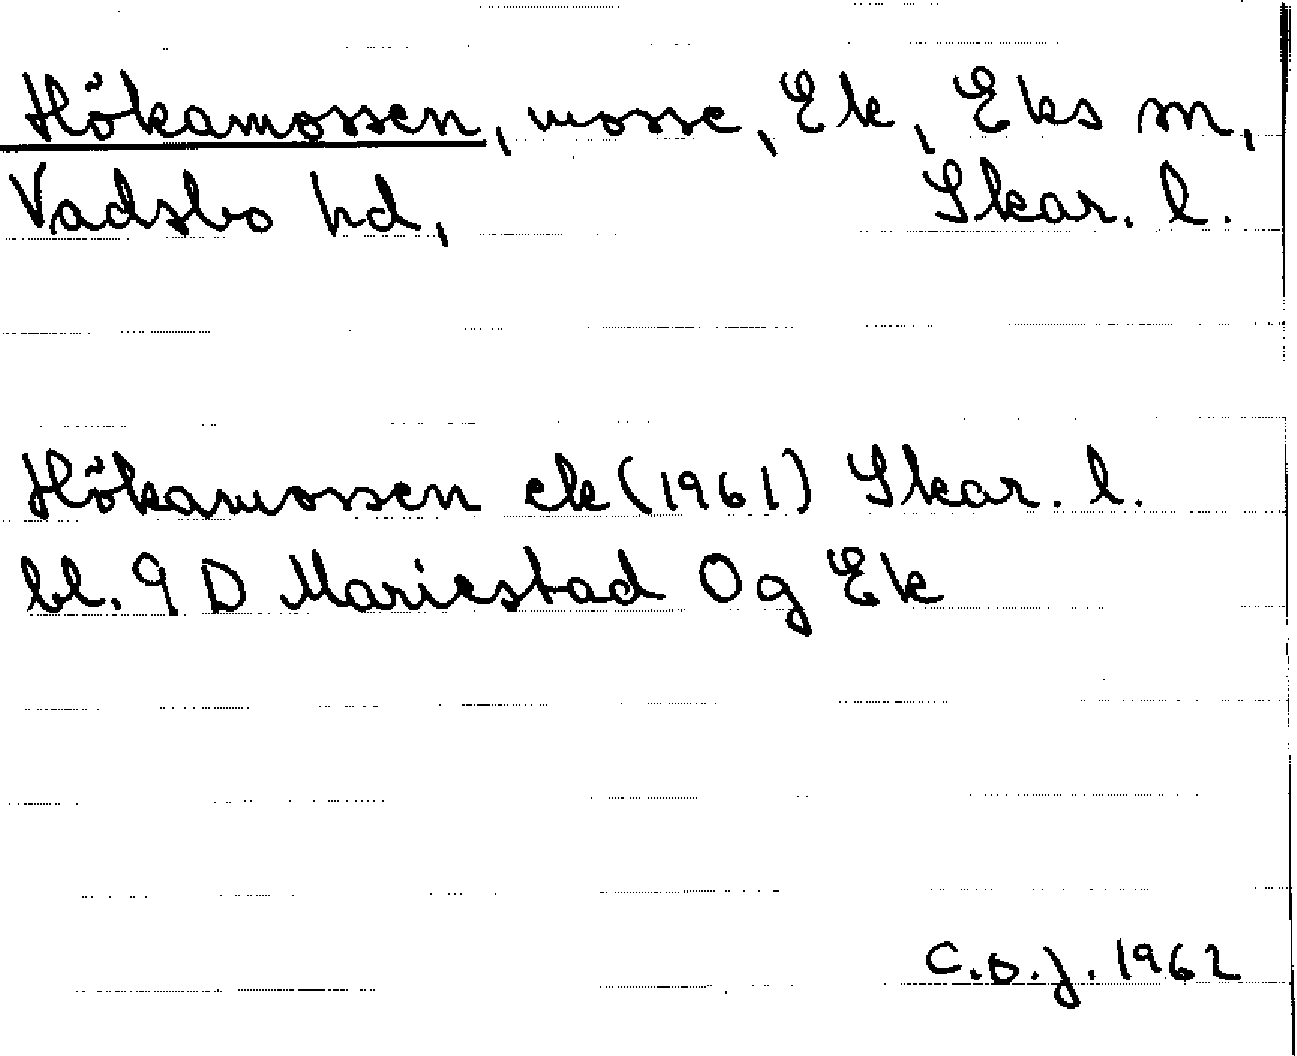 Hökamossen, mosse, Ek, Eks sn,
Vadsbo hd, Skar. l.
Hökamossen ek (1961) Skar. l.
bl. 9 D Mariestad 0g Ek
C.O.J. 1962